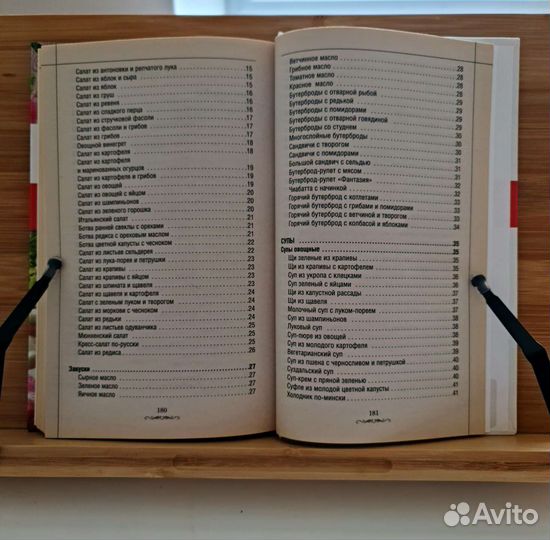 Салат из антоновки и репчатого лука 15
Салат из яблок и сыра 15
Салат из яблок 15
Салат из груш 16
Салат из ревеня 16
Салат из сладкого перца 16
Салат из стручковой фасоли 17
Салат из фасоли и грибов 17
Салат из грибов 17
Овощной винегрет 18
Салат из картофеля 18
Салат из картофеля
и маринованных огурцов 19
Салат из картофеля и грибов 19
Салат из овощей 19
Салат из овощей с яйцом 20
Салат из шампиньонов 20
Салат из зеленого горошка 20
Итальянский салат 21
Ботва ранней свеклы с орехами 21
Ботва редиса с ореховым маслом 21
Ботва цветной капусты с чесноком 22
Салат из листьев сельдерея 22
Салат из лука-порея и петрушки 22
Салат из крапивы 23
Салат из крапивы с яйцом 23
Салат из шпината и щавеля 23
Салат из щавеля и картофеля 24
Салат с зеленым луком и творогом 24
Салат из моркови с чесноком 24
Салат из редьки 24
Салат из листьев одуванчика 25
Мюнхенский салат 25
Кресс-салат по-русски 25
Салат из редиса 26
Закуски 27
Сырное масло 27
Зеленое масло 27
Яичное масло 27
180
Ветчинное масло 28
Грибное масло 28
Томатное масло 28
Красное масло 28
Бутерброды с отварной рыбой 28
Бутерброды с редькой 29
Бутерброды с помидорами 29
Бутерброды с отварной говядиной 29
Бутерброды со студнем 29
Многослойные бутерброды 30
Сандвичи с творогом 30
Сандвичи с помидорами 30
Большой сандвич с сельдью 31
Бутерброд-рулет с мясом 31
Бутерброд-рулет «Фантазия» 31
Чиабатта с начинкой 32
Горячий бутерброд с котлетами 32
Горячий бутерброд с грибами и помидорами 33
Горячий бутерброд с ветчиной и творогом 33
Горячий бутерброд с колбасой и яблоками 34
СУПЫ 35
Супы овощные 35
Щи зеленые из крапивы 35
Щи из крапивы с картофелем 35
Суп из укропа с клецками 36
Суп зеленый с яйцами 36
Щи из капустной рассады 37
Щи из щавеля 37
Молочный суп с луком-пореем 37
Суп из шампиньонов 38
Луковый суп 38
Суп-пюре из овощей 38
Суп из молодого картофеля 39
Вегетарианский суп 39
Суп из пшена с черносливом и петрушкой 40
Суздальский суп 40
Суп-крем с пряной зеленью 40
Суфле из молодой цветной капусты 41
Холодник по-мински 41
181
Avito